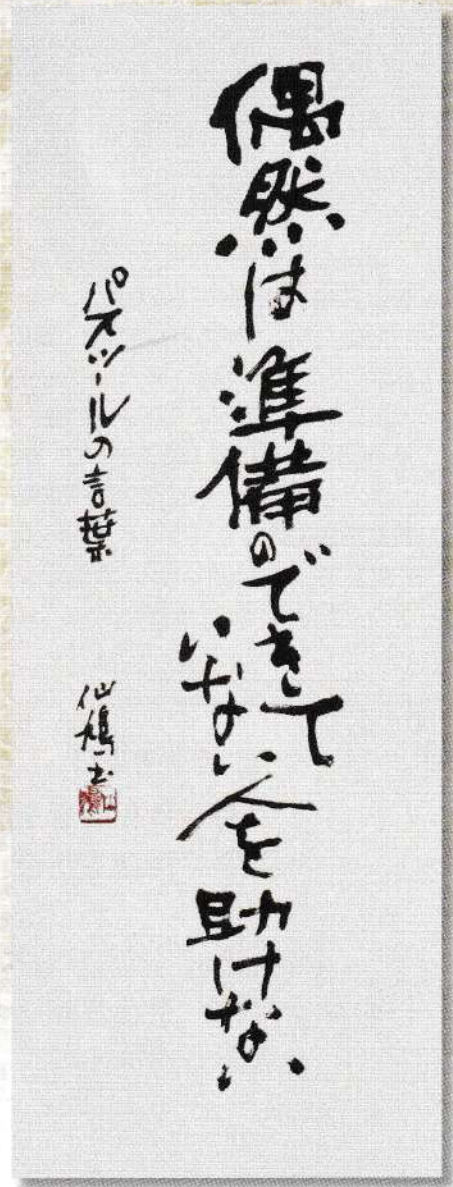 偶然は準備のできて
いない人を助けない
パスツールの言葉
仙鳩書